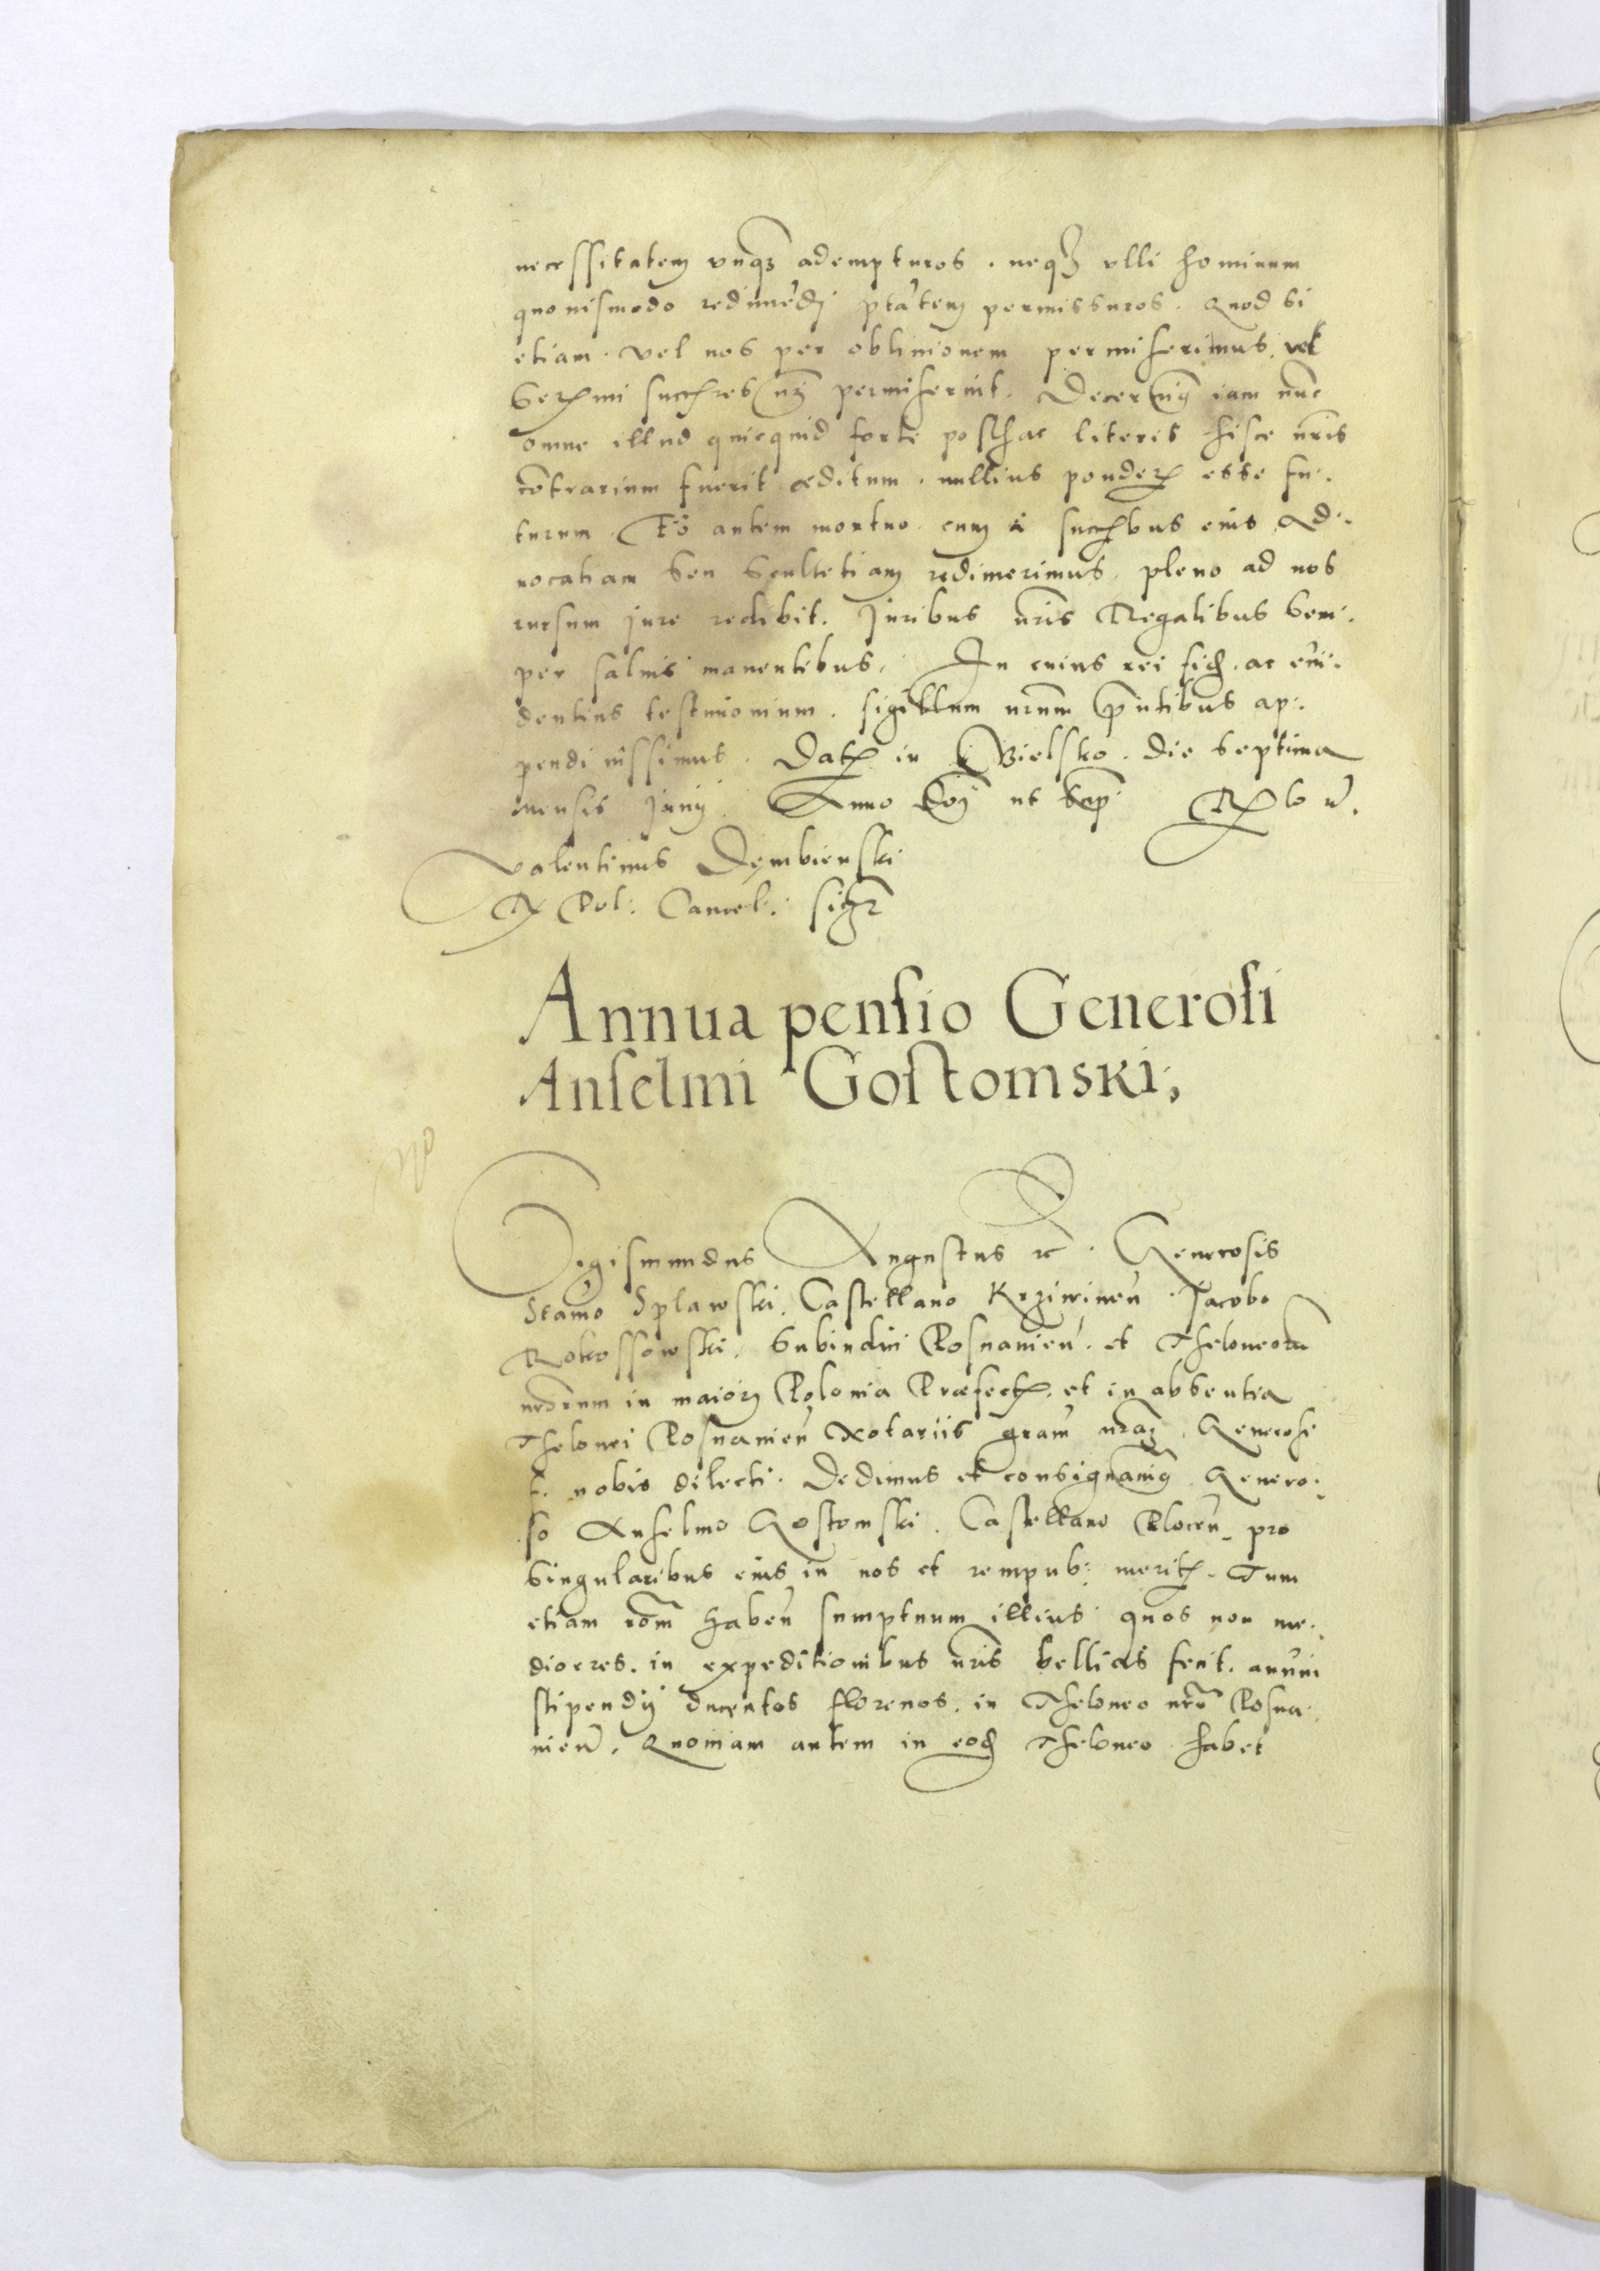 necessitatem vnq̃ adempturos . neq̃ vlli hominum
quouismodo redimẽdi ptãtem permissuros . Quod si
etiam . vel nos per obliuionem permiserimus . vel
Serᵐⁱ succres nr̃i permiserint . Decernim̃g iam nũc
omne illud quicquid forte posthac literis hisce nr̃is
cõtrarium fuerit æditum . nullius ponder esse fu:
turum . Eo autem mortuo . cum à succbus eius Ad:
uocatiam seu Scultetiam redimerimus . pleno ad nos
rursum jure redibit . Juribus nr̃is Regalibus sem:
per saluis manentibus . In cuius rei fid . ac eui:
dentius testimonium . sigillum nr̃um p̃ntibus ap:
pendi iussimus . Dat in Bielsko . die septima
mensis Junij . Anno Doj ut sup
Valentinus Dembienski
R Pol: Cancel: sigt
Annua pensio Generosi
Anselmi Gostomski;
Sigismundus Augustus &c . Generosis
Stan̄o Splawski . Castellano Krziwineñ . Jacobo
Rokossowski . Subiudici Posnanieñ . et Theloneorũ
nr̃orum in maiori Polonia Præfect . et in absentia
Thelonei Posnanieñ Notariis gram̄ nr̃am . Generosi
f. nobis dilecti . Dedimus et consignauim̃g Genero:
so Anselmo Gostomski . Castellano Ploceñ . pro
singularibus eius in nos et rempub: merit . Tum
etiam rõm habeñ sumptuum illius quos non me:
diocres . in expeditionibus nr̃is bellicis fecit . annui
stipendij ducentos florenos . in Theloneo nr̃o Posna:
nieñ . Quoniam autem in eod Theloneo habet